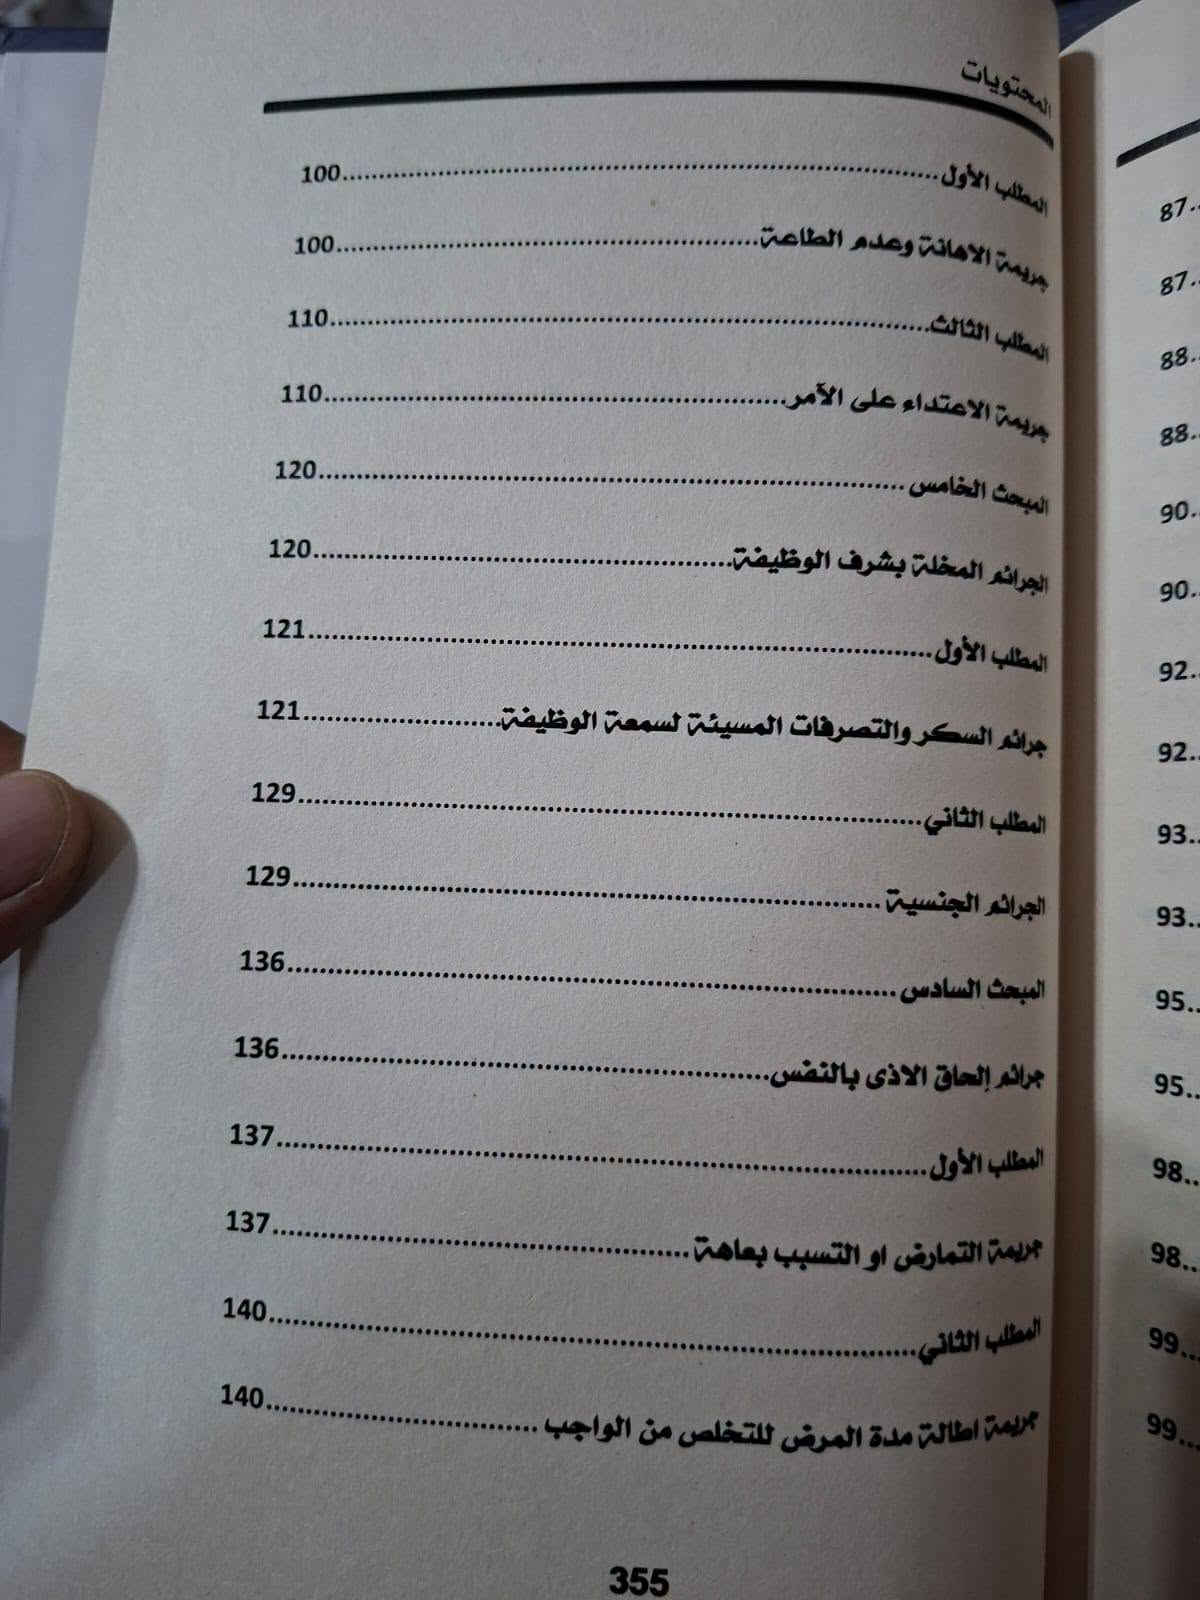 المحتويات
المطلب الأول......100
جريمة الاهانة وعدم الطاعة......100
المطلب الثالث......110
جريمة الاعتداء على الآمر......110
المبحث الخامس......120
الجرائم المخلة بشرف الوظيفة......120
المطلب الأول......121
جرائم السكر والتصرفات المسيئة لسمعة الوظيفة......121
المطلب الثاني......129
الجرائم الجنسية......129
المبحث السادس......136
جرائم إلحاق الاذى بالنفس......136
المطلب الأول......137
جريمة التمارض او التسبب بعاهة......137
المطلب الثاني......140
جريمة اطالة مدة المرض للتخلص من الواجب......140
355
87..
87..
88..
88..
90..
90..
92..
92..
93..
93..
95..
95..
98..
98..
99...
99...